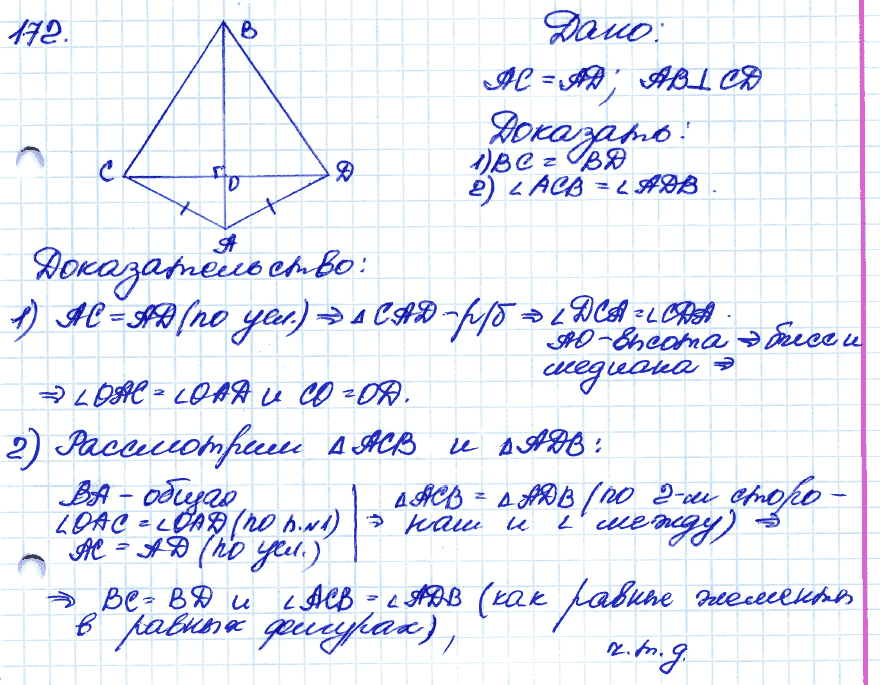 172.
B
C
D
O
A
Дано:
AC = AD; AB⊥CD
Доказать:
1) BC = BD
2) ∠ACB = ∠ADB.
Доказательство:
1) AC = AD (по усл.) ⇒ △CAD - р/б ⇒ ∠DCA = ∠CDA.
AO - высота ⇒ бисс и
медиана ⇒
⇒ ∠OAC = ∠OAD и CO = OD.
2) Рассмотрим △ACB и △ADB:
BA - общая
∠OAC = ∠OAD (по п.№1)
AC = AD (по усл.)
△ACB = △ADB (по 2-м сторо-
⇒ нам и ∠ между) ⇒
⇒ BC = BD и ∠ACB = ∠ADB (как равные элементы
в равных фигурах),
ч.т.д.